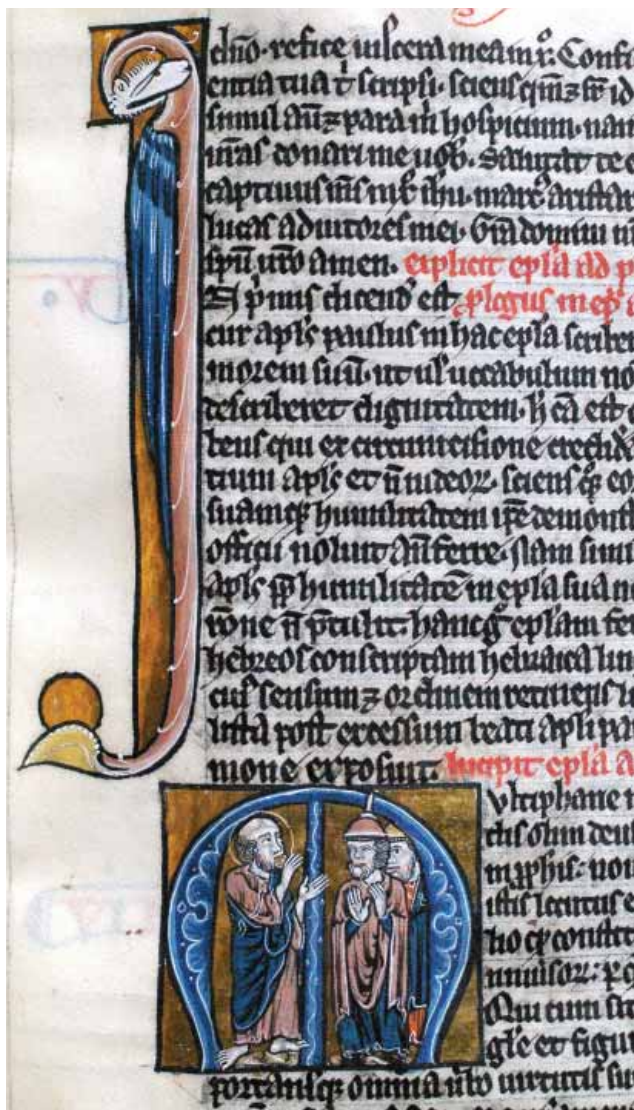 dn̄o. refice uiscera mea in x̄. Confi
entia tua t̄ scripsi. sciens qm̄ ⁊ sr̄ id
simul aūt ⁊ para m̄ hospicium. nam
ur̄as donari me uob̄. Salutat te e
captiuus m̄s in x̄ ih̄u. marcꝰ aristar
lucas adiutores mei. Gr̄a domini n
sp̄u ur̄o amen. explicit ep̄la ad p
IN p̄mis dicend̄ est. ꝓlogus in ep̄ a
cur apl̄s paulus in hac ep̄la scriben
morem suū. ut ul̄ uocabulum no
describeret dignitatem. h̄ cā est
deus qui ex circumcisione credid
tium apl̄s et n̄ iudeoꝝ. sciens qͦꝫ eo
suamqꝫ humilitatem ip̄e demonst
officii noluit an̄ferre. Nam simi
apl̄s ꝓp̄ humilitatē in ep̄la sua n
tione n̄ p̄tulit. hanc gͦ ep̄lam fer
hebreos conscriptam hebraica lin
cuiꝰ sensum ⁊ ordinem retinens l
lucā post excessum beati apl̄i pa
mone exposuit. Incipit ep̄la a
Multiphane m
dis olim deus
in ꝓphis. noui
istis locutus e
dio qͣ constit
uniuisoꝝ. ꝑ q
Qui cum si
gl̄e et figur
portansqꝫ omnia ūbo uirtutis su